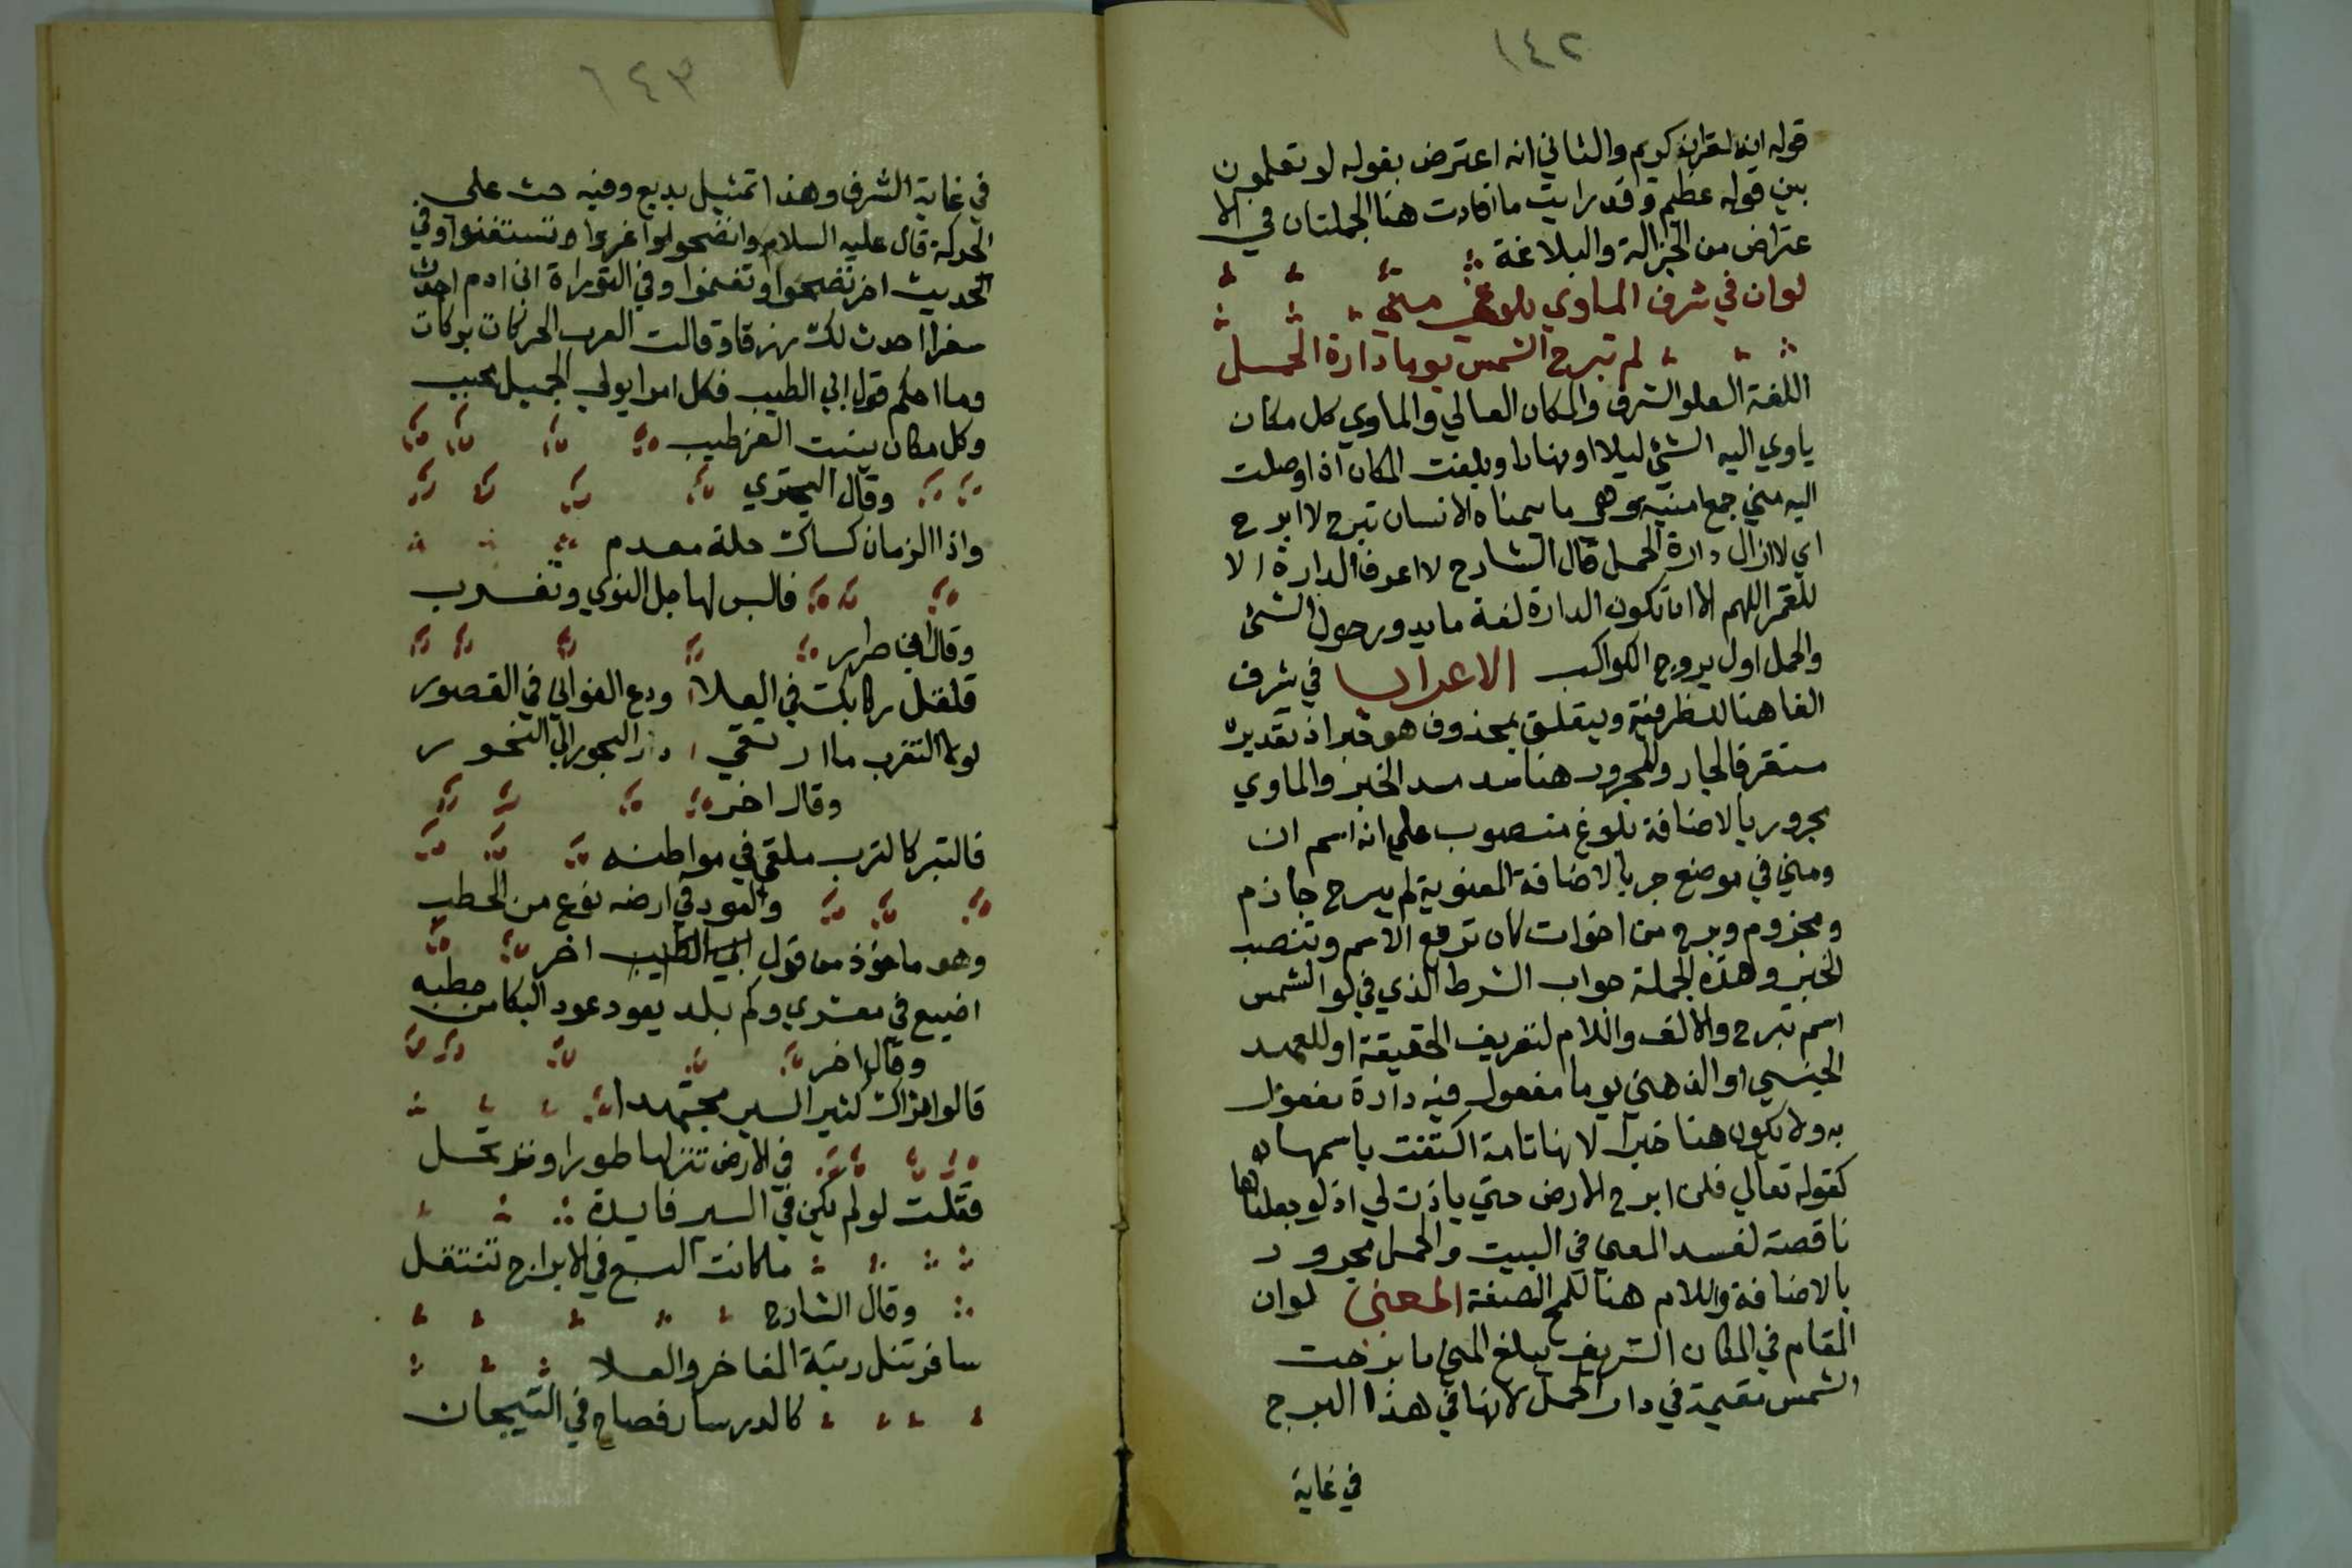 ١٤٢
قوله انه لقران كريم والثاني انه اعترض بقوله لو تعلمون
بين قوله عظيم وقد رايت ما افادت هنا الجملتان في الا
عتراض من الجزالة والبلاغة
لوان في شرف الماوي بلوغ مني
لم تبرح الشمس يوما دارة الحمل
اللغة العلو الشرف والمكان العالي والماوي كل مكان
ياوي اليه الشئ ليلا او نهارا وبلغت المكان اذا وصلت
اليه مني جمع امنية وهي ما يتمناه الانسان تبرح لا ابرح
اي لا ازال دارة الحمل قال الشارح لا اعرف الدارة الا
للقمر اللهم الا ان تكون الدارة لغة ما يدور حول الشئ
والحمل اول بروج الكواكب الاعراب في شرف
الفا هنا للظرفية ويتعلق بمحذوف هو خبر اذ تقديره
مستقر فالجار والمجرور هنا سد مسد الخبر والماوي
مجرور بالاضافة بلوغ منصوب علي انه اسم ان
ومني في موضع جر بالاضافة المعنوية لم يبرح جازم
ومجزوم وبرح من اخوات كان ترفع الاسم وتنصب
الخبر وهذه الجملة جواب الشرط الذي في لو الشمس
اسم تبرح والالف واللام لتعريف الحقيقة او للعهد
الجنسي او الذهني يوما مفعول فيه دارة مفعول
به ولا يكون هنا خبرا لانها تامة اكتفت باسمها
كقوله تعالي فلن ابرح الارض حتي ياذن لي اذ لو جعلناها
ناقصة لفسد المعني في البيت والحمل مجرور
بالاضافة واللام هنا للمح الصفة المعني لوان
المقام في المكان الشريف يبلغ المني ما برحت
الشمس مقيمة في دار الحمل لانها في هذا البرج
في غاية
١٤٣
في غاية الشرف وهذا تمثيل بديع وفيه حث علي
الحركة قال عليه السلام وا اغزوا وتستغنوا وفي
الحديث اخر تغنموا وفي التوراة ان ادم احدث
سفرا احدث لك رزقا وقالت العرب الحركات بركات
وما احكم قول ابي الطيب فكل امرا يولي الجميل محبب
وكل مكان ينبت العز طيب
وقال البحتري
واذا الزمان كساك حلة معدم
فالبس لها حلل النوي وتغرب
وقال
قلقل ركابك في العلا ودع الغواني في القصور
لولا التغرب ما ارتقي در البحور الي النحور
وقال اخر
فالتبر كالترب ملقي في مواطنه
والعود في ارضه نوع من الحطب
وهو ماخوذ من قول ابي الطيب اخر
اضيع في معشري وكم بلد يعود عود الكبا من حطبه
وقال اخر
قالوا نراك كثير السير مجتهدا
في الارض تنزلها طورا وترتحل
فقلت لو لم يكن في السير فايدة
ما كانت السبع في الابراج تنتقل
وقال الشارح
سافر تنل رتبة المفاخر والعلا
كالدر سار فصار في التيجان